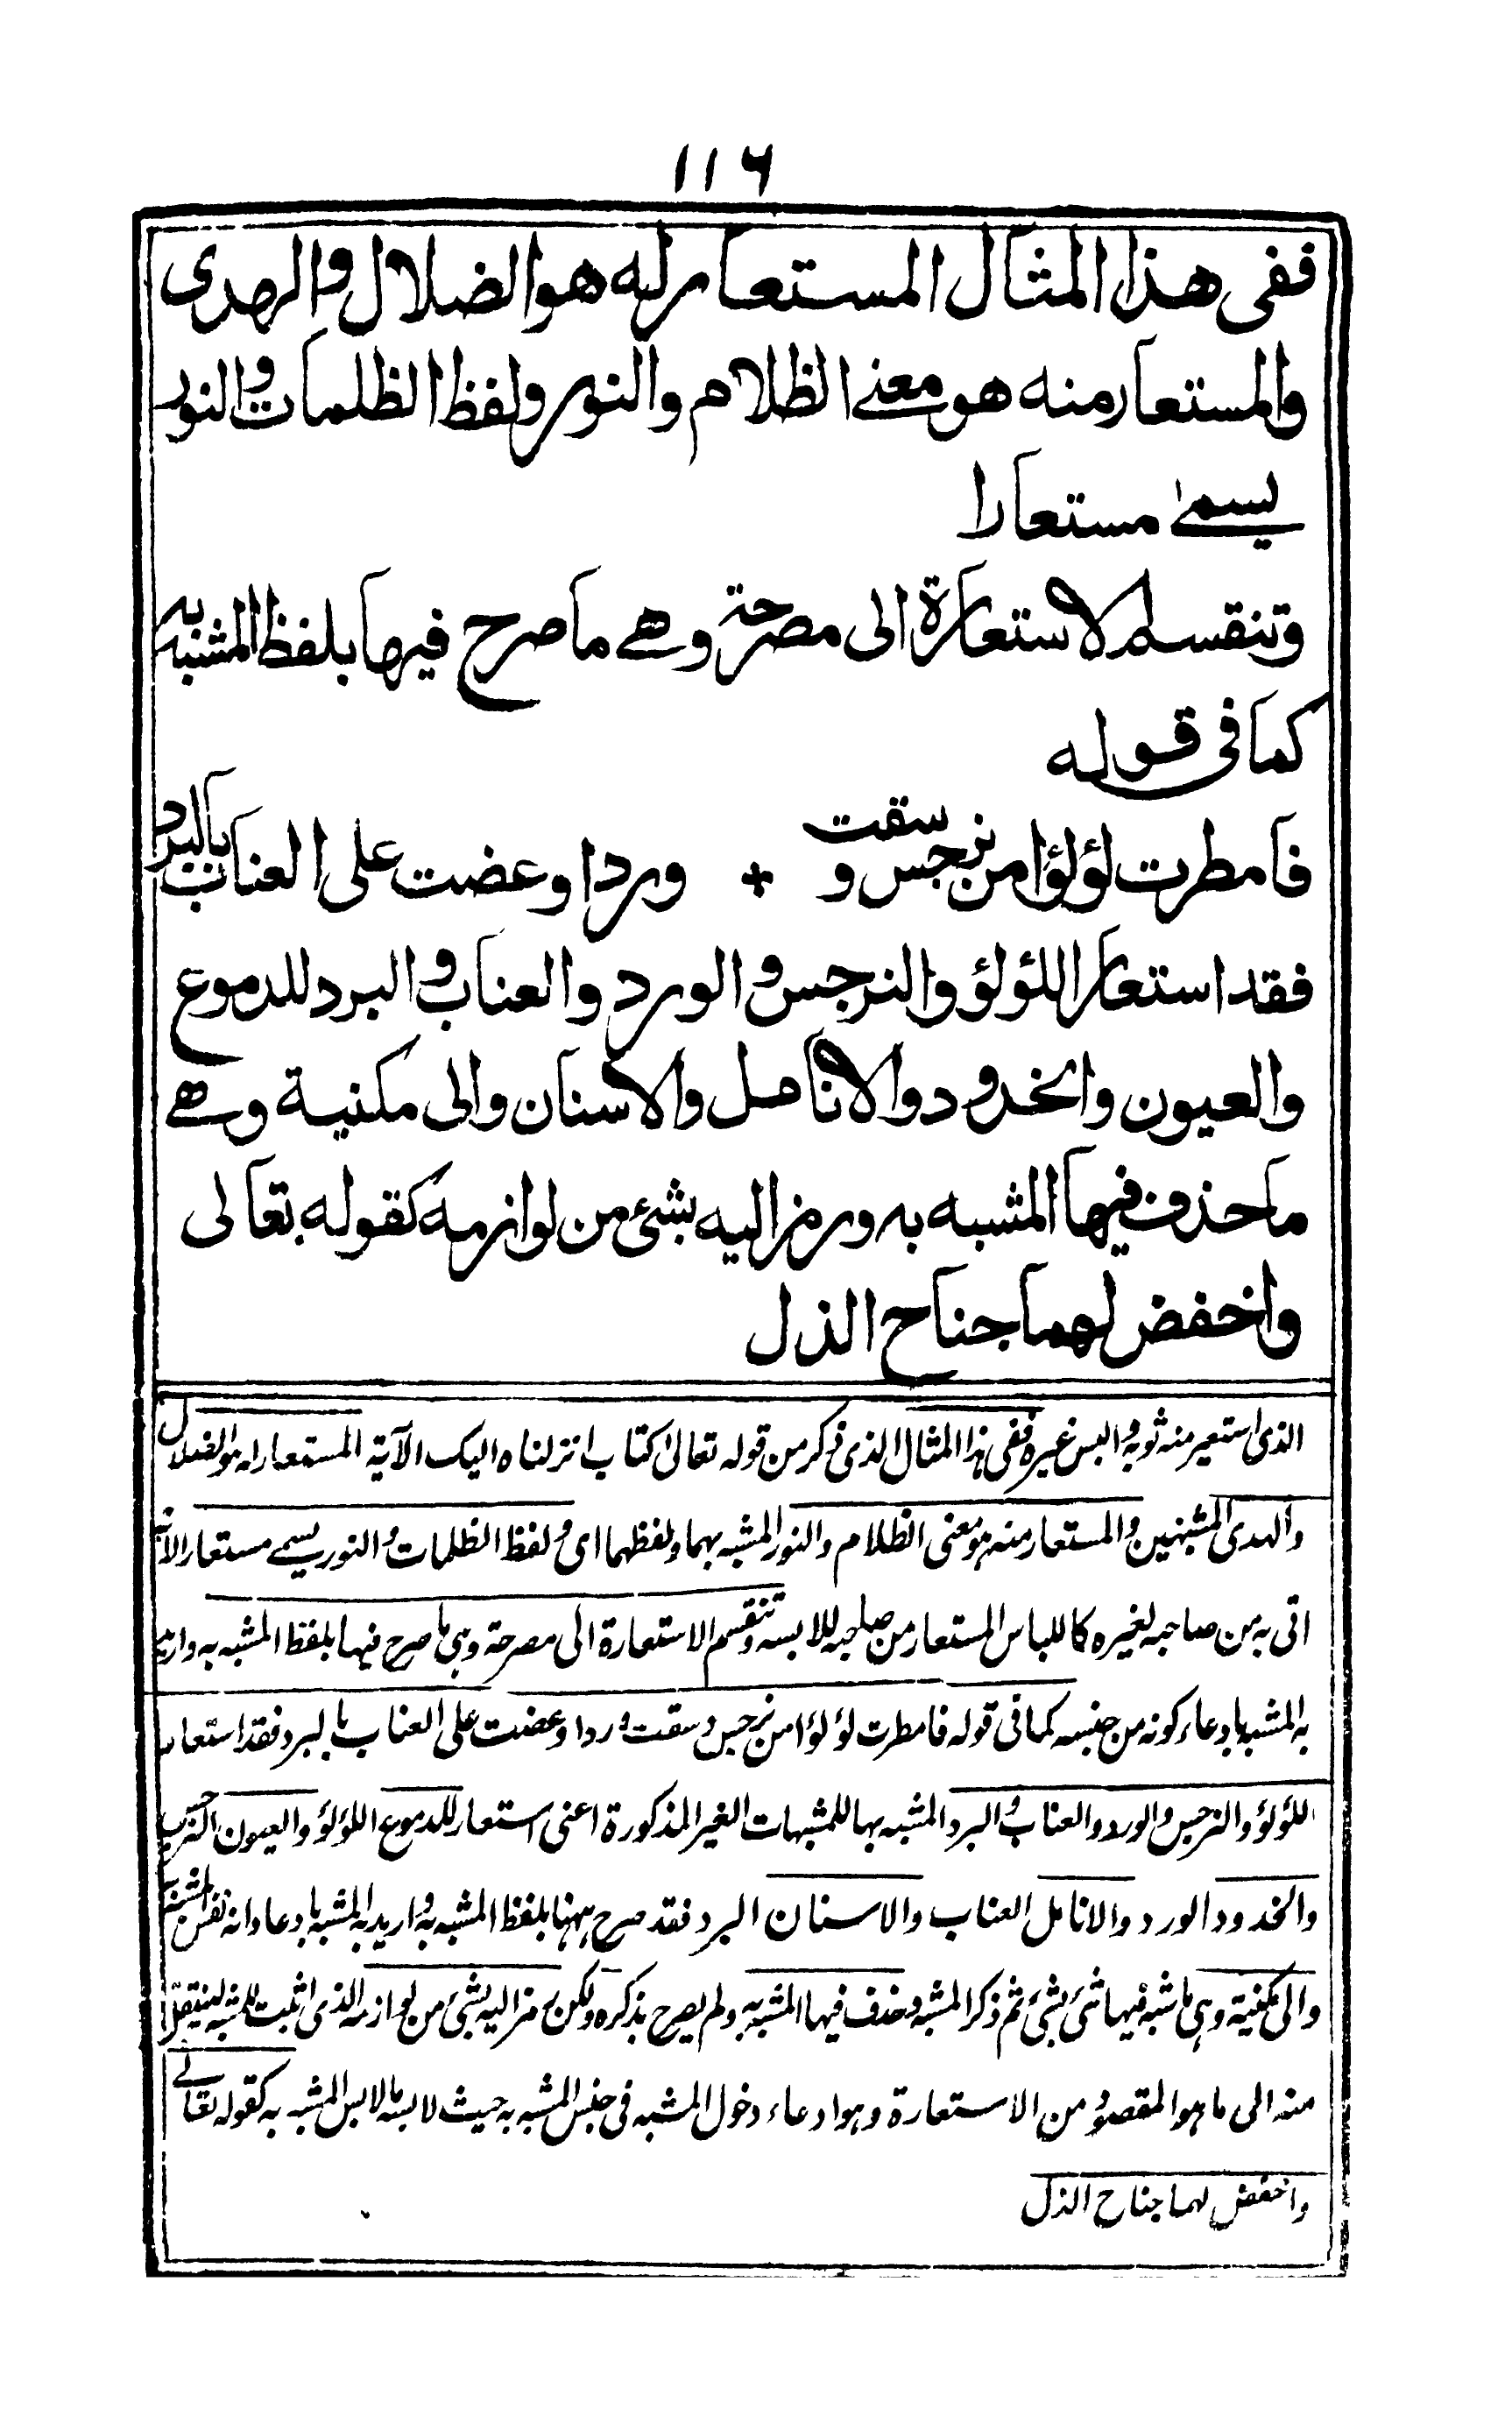 ١١٦
ففى هذا المثال المستعار له هو الضلال والهدى
والمستعار منه هو معنى الظلام والنور ولفظ الظلمات والنور
يسمى مستعارا
وتنقسم الاستعارة الى مصرحة وهى ما صرح فيها بلفظ المشبه به
كما فى قوله
فامطرت لؤلؤا من نرجس وسقت + وردا وعضت على العناب بالبرد
فقد استعار اللؤلؤ والنرجس والورد والعناب والبرد للدموع
والعيون والخدود والانامل والاسنان والى مكنية وهى
ما حذف فيها المشبه به ورمز اليه بشئ من لوازمه كقوله تعالى
واخفض لهما جناح الذل
الذى استعير منه ثوبه والبس غيره ففى هذا المثال الذى ذكر من قوله تعالى كتاب انزلناه اليك الآية المستعار له هو الضلال
والهدى المشبهين والمستعار منه هو معنى الظلام والنور المشبه بهما ولفظهما اى ولفظ الظلمات والنور يسمى مستعارا لانه
اتى به من صاحبه لغيره كاللباس المستعار من صاحبه للابسه وتنقسم الاستعارة الى مصرحة وهى ما صرح فيها بلفظ المشبه به واريد
به المشبه بادعاء كونه من جنسه كما فى قوله فامطرت لؤلؤا من نرجس وسقت وردا وعضت على العناب بالبرد فقد استعار
اللؤلؤ والنرجس والورد والعناب والبرد المشبه بها للمشبهات الغير المذكورة اعنى استعار للدموع اللؤلؤ والعيون النرجس
والخدود الورد والانامل العناب والاسنان البرد فقد صرح ههنا بلفظ المشبه به واريد به المشبه بادعاء انه نفس المشبه به
والى مكنية وهى ما شبه فيها شئ بشئ ثم ذكر المشبه وحذف فيها المشبه به ولم يصرح بذكره ولكن رمز اليه بشئ من لوازمه الذى اثبت للمشبه لينتقل
منه الى ما هو المقصود من الاستعارة وهو ادعاء دخول المشبه فى جنس المشبه به حيث لابسه ما لابس المشبه به كقوله تعالى
واخفض لهما جناح الذل